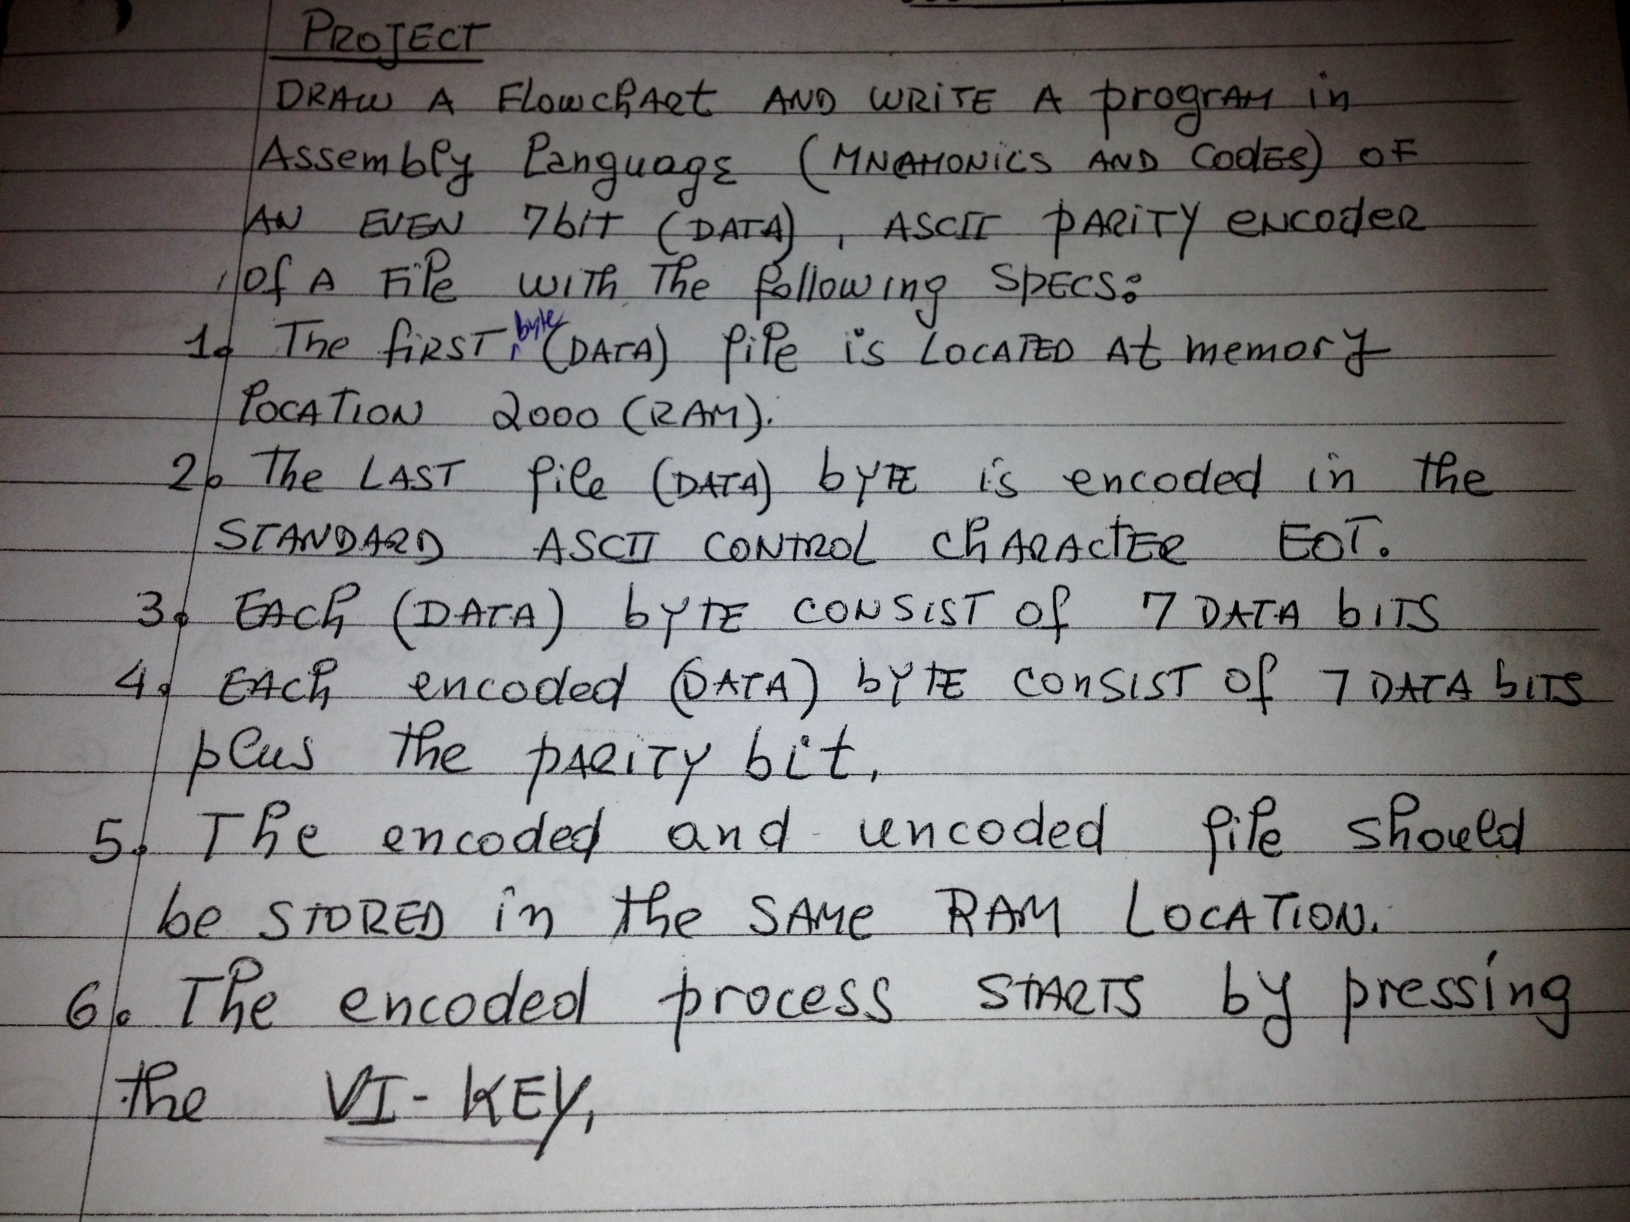 PROJECT
DRAW A FlowchARt AND WRITE A progrAM in
Assembly language (MNAMONICS AND CodES) OF
AN EVEN 7bIT (DATA), ASCII PARITY encoder
of A File WITH The following SPECS:
1. The fiRST byte (DATA) file is LOCATED At memory
lOCATION 2000 (RAM).
2. The LAST file (DATA) byTE is encoded in the
STANDARD ASCII CONTROL ChARACTER EOT.
3. EACh (DATA) byTE CONSIST of 7 DATA bITS
4. EACh encoded (DATA) byTE CONSIST of 7 DATA bITS
plus the PARITY bit.
5. The encoded and uncoded file should
be STORED in the SAMe RAM LOCATION.
6. The encoded process STARTS by pressing
the VI-KEY.